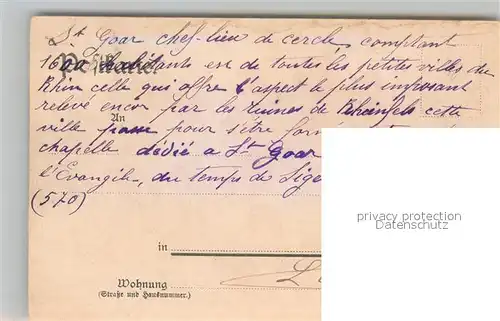 St Goar chef-lieu de cercle comptant
1600 habitants est de toutes les petites villes du
Postkarte
Rhin celle qui offre l'aspect le plus imposant
relevé encor par les ruines de Rheinfels cette
An
ville passe pour s'être formé
chapelle dédié a St Goar
l'Evangile, du temps de Sige
(570)
privacy protection
www.ansichtskarten-center.de
in
Wohnung
(Straße und Hausnummer.)